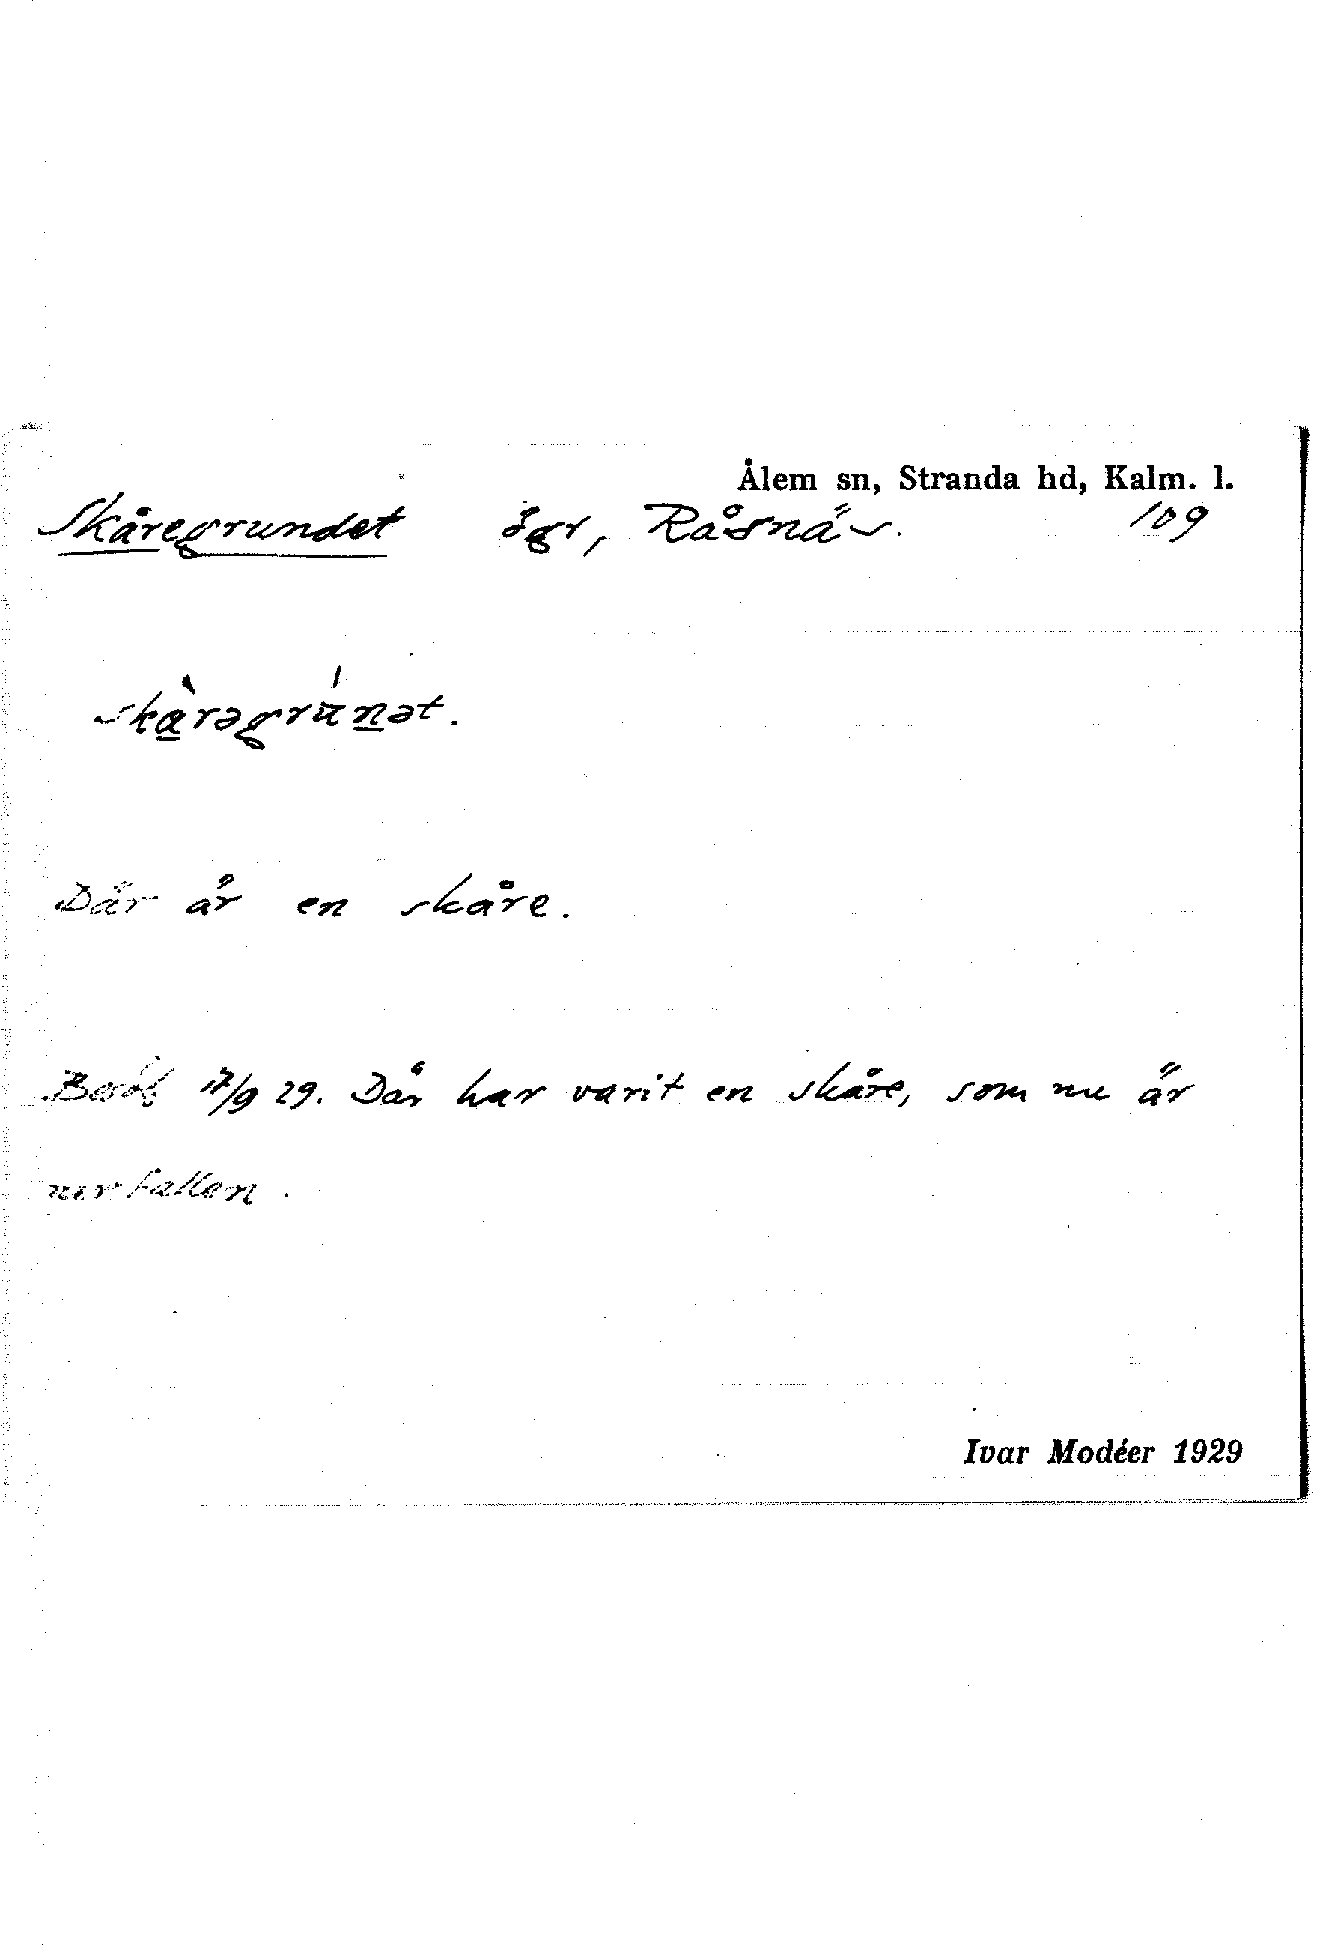 Ålem sn, Stranda hd, Kalm. l.
Skåregrundet ögr, Råsnäs. 109
skàrəgrúnət.
Där är en skåre.
Besök 17/9 29. Där har varit en skåre, som nu är
nerfallen.
Ivar Modéer 1929